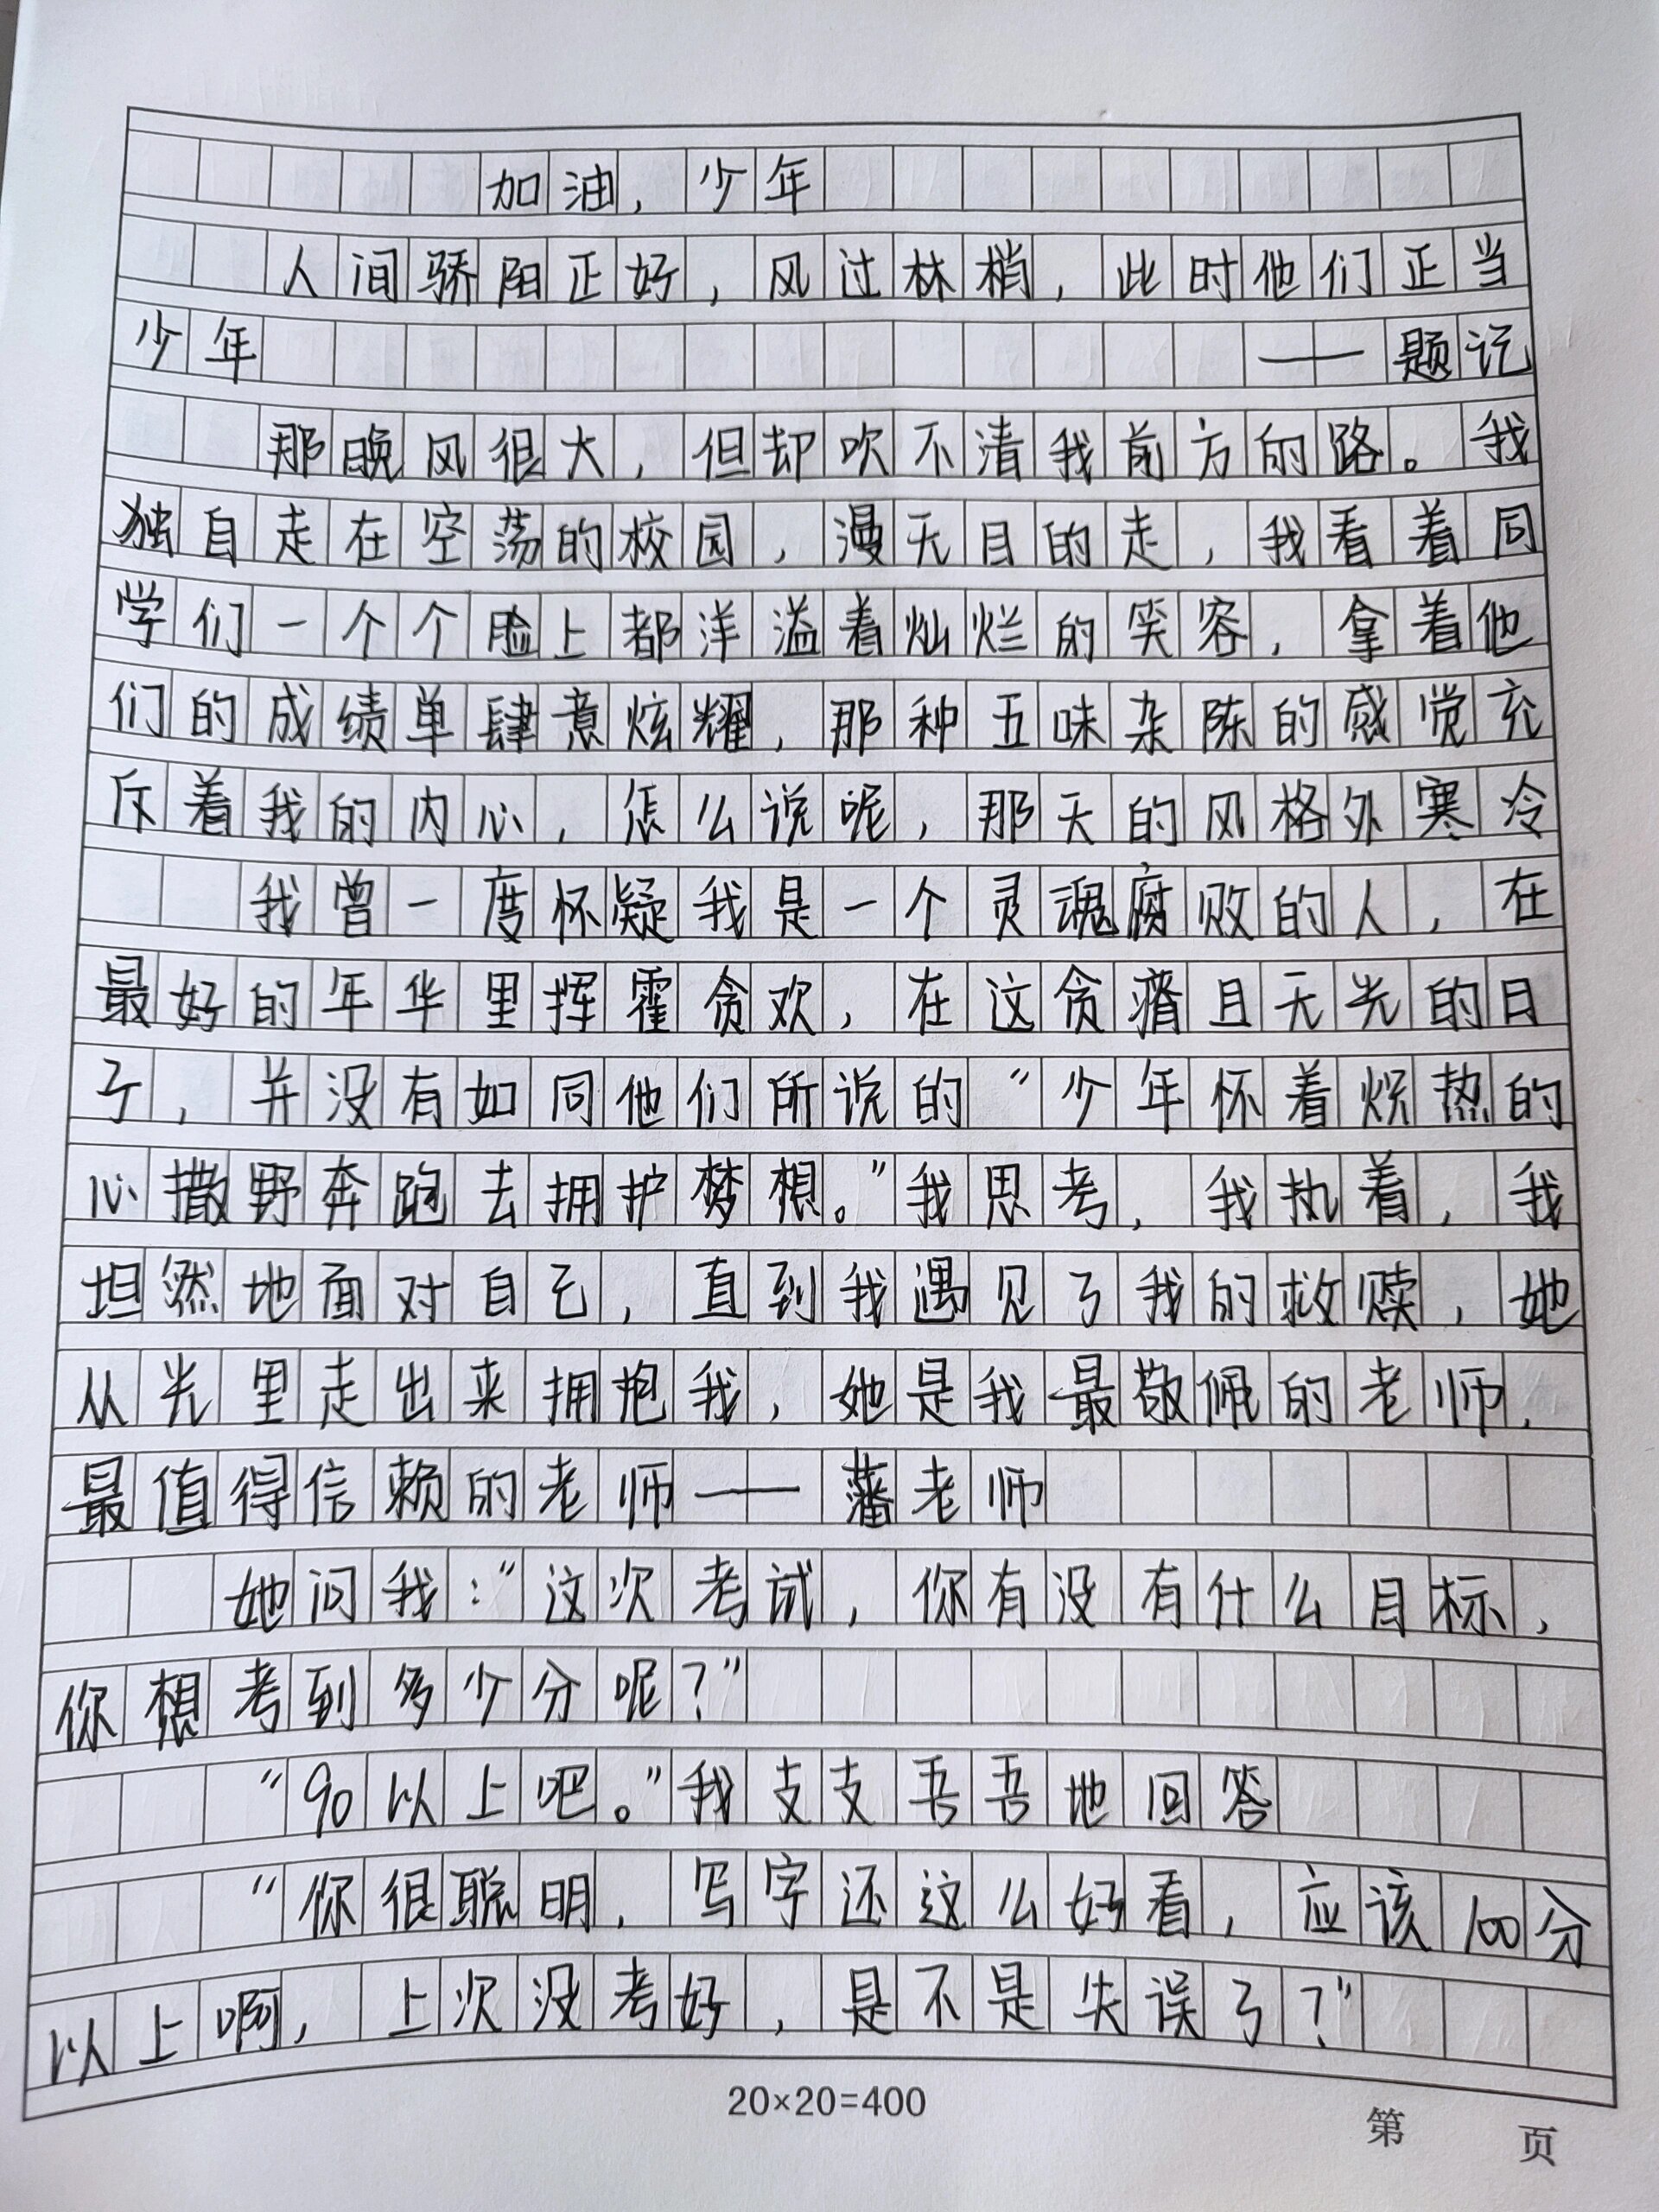 加油，少年
人间骄阳正好，风过林梢，此时他们正当
少年 ——题记
那晚风很大，但却吹不清我前方的路。我
独自走在空荡的校园，漫无目的走，我看着同
学们一个个脸上都洋溢着灿烂的笑容，拿着他
们的成绩单肆意炫耀，那种五味杂陈的感觉充
斥着我的内心，怎么说呢，那天的风格外寒冷
我曾一度怀疑我是一个灵魂腐败的人，在
最好的年华里挥霍贪欢，在这贪瘠且无光的日
子，并没有如同他们所说的“少年怀着炽热的
心撒野奔跑去拥护梦想。”我思考，我执着，我
坦然地面对自己，直到我遇见了我的救赎，她
从光里走出来拥抱我，她是我最敬佩的老师，
最值得信赖的老师——藩老师
她问我：“这次考试，你有没有什么目标，
你想考到多少分呢？”
“90以上吧。”我支支吾吾地回答
“你很聪明，写字还这么好看，应该100分
以上啊，上次没考好，是不是失误了？”
20×20=400
第 页